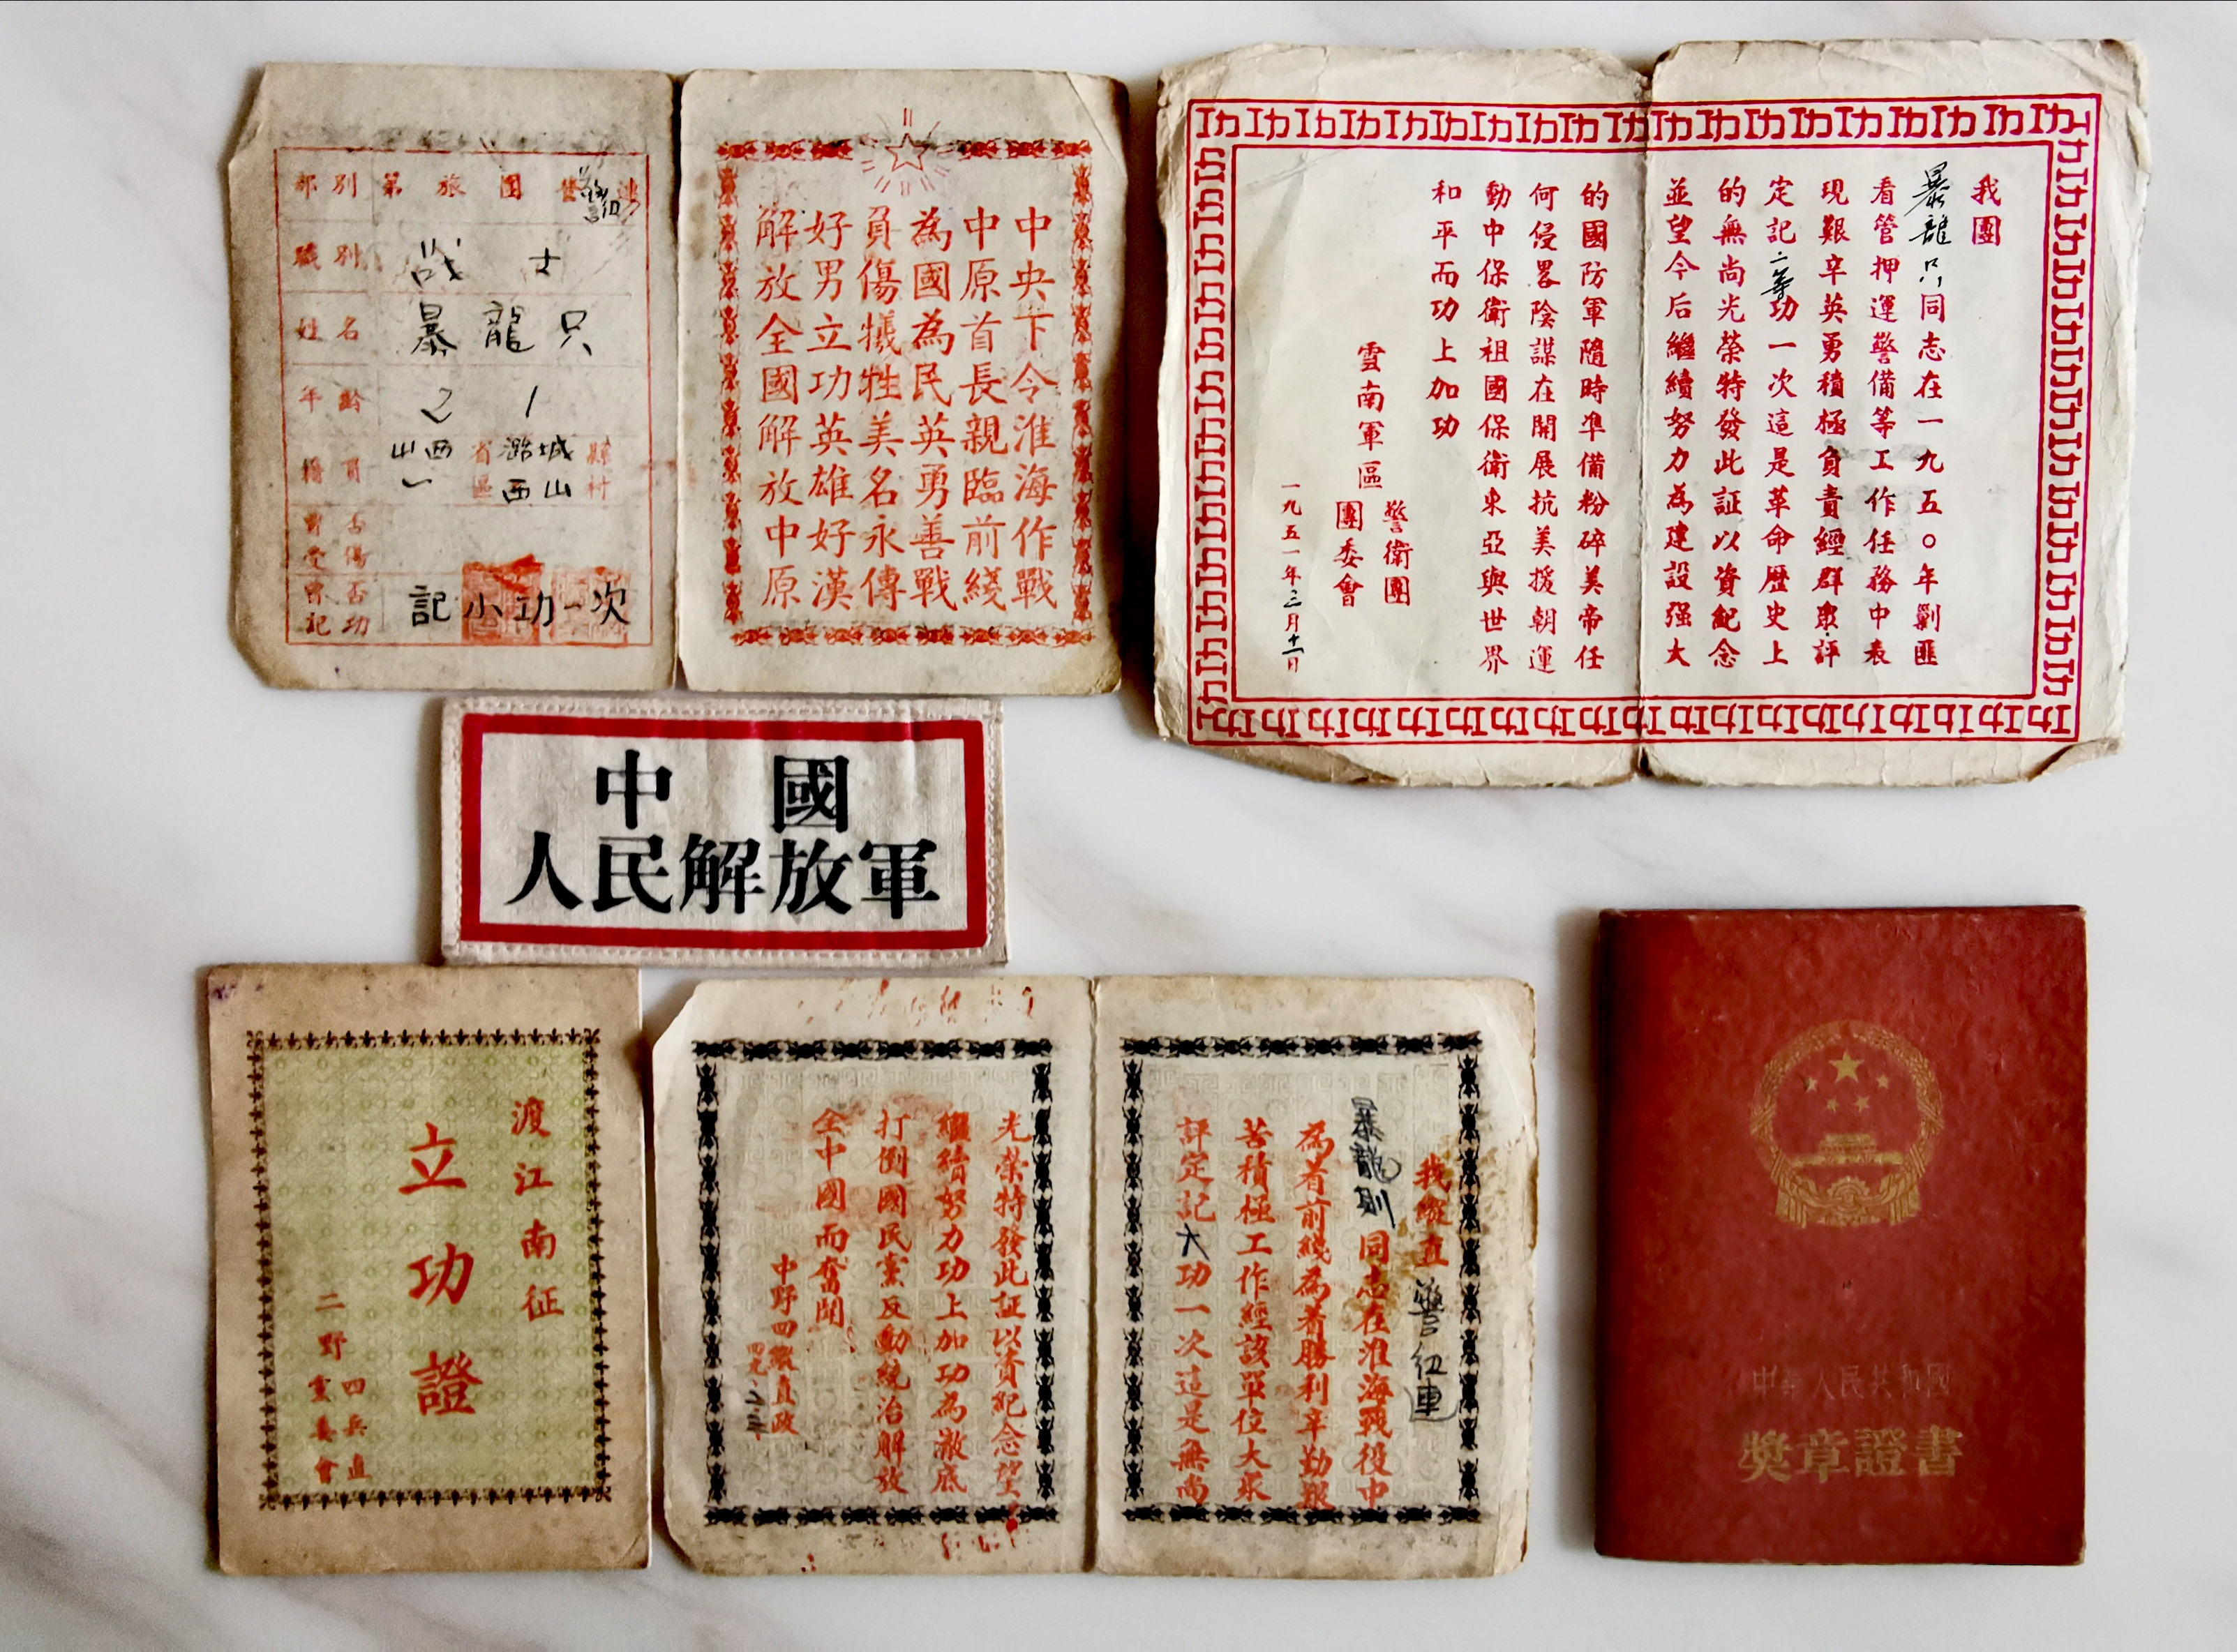 部別 第 旅 團 連
職別 战士
姓名 暴龍只
年齡 21
籍貫 山西省潞城縣
一區西山村
曾否受傷
曾否記功 記小功一次
中央下令淮海作戰
中原首長親臨前綫
為國為民英勇善戰
負傷犧牲美名永傳
好男立功英雄好漢
解放全國解放中原
我團
暴龍只同志在一九五〇年剿匪
看管押運警備等工作任務中表
現艱辛英勇積極負責經群眾評
定記二等功一次這是革命歷史上
的無尚光荣特發此証以資紀念
並望今后繼續努力為建設强大
的國防軍隨時準備粉碎美帝任
何侵畧陰謀在開展抗美援朝運
動中保衛祖國保衛東亞與世界
和平而功上加功
雲南軍區
警衛團
團委會
一九五一年三月十一日
中國
人民解放軍
渡江南征
立功證
二野
四兵直
黨委會
我縱直警红連
暴龍則同志在淮海戰役中
為着前綫為着勝利辛勤艰
苦積極工作經該單位大眾
評定記大功一次這是無尚
光榮特發此証以資紀念望
繼續努力功上加功為澈底
打倒國民黨反動統治解放
全中國而奮鬭
中野四縱直政
中華人民共和國
獎章證書